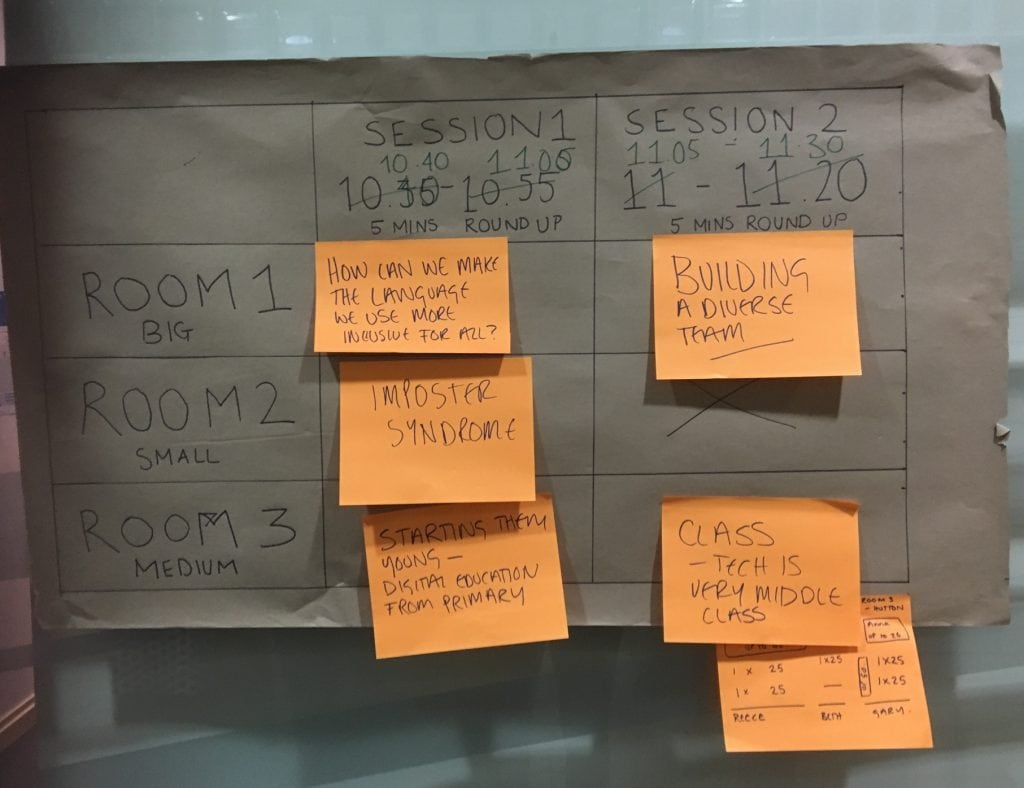 SESSION 1
10.40 11.00
10.55
5 MINS ROUND UP
SESSION 2
11.05 - 11.30
11 - 11.20
5 MINS ROUND UP
ROOM 1
BIG
HOW CAN WE MAKE
THE LANGUAGE
WE USE MORE
INCLUSIVE FOR ALL?
BUILDING
A DIVERSE
TEAM
ROOM 2
SMALL
IMPOSTER
SYNDROME
ROOM 3
MEDIUM
STARTING THEM
YOUNG —
DIGITAL EDUCATION
FROM PRIMARY
CLASS
- TECH IS
VERY MIDDLE
CLASS
ROOM 3
- HUTTON
UP TO 25
1 x 25
1x25
1x25
1 x 25
—
1x25
REECE
BETH
GARY.